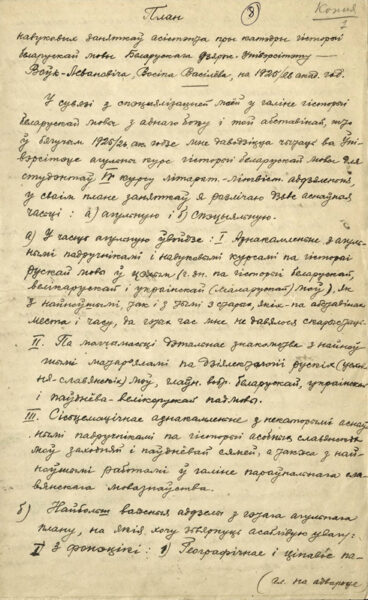 План
(8)
Копия
1
навуковых заняткаў асістэнта пры катэдры гісторыі
беларускай мовы Беларускага Дзярж. Універсітэту —
Воўк-Левановіча, Восіпа Васілева, на 1925/26 акад. год.
У сувязі з спэцыялізацыяй маёй у галіне гісторыі
беларускай мовы з аднаго боку і той абставінай, што
ў бягучым 1925/26 ак. годзе мне давядзецца чытаць ва Уні-
вэрсітэце агульны курс гісторыі беларускай мовы для
студэнтаў IV курсу літарат.-лінгвіст. аддзялення,
у сваім плане заняткаў я разлічаю дзве асноўныя
часьці: а) агульную і б) спэцыяльную.
а) У часьць агульную ўвойдзе: I Азнакамленне з агуль-
нымі падручнікамі і навуковымі курсамі па гісторыі
рускай мовы ў цэлым (г. зн. па гісторыі беларускай,
велікарускай і украінскай (маларускай) моў), як
з найноўшымі, так і з тымі з старых, якіх па абставінах
места і часу, да гэтага час мне не давялося скарыстаць.
II. Па магчымасці дэталёвае знакомства з найноў-
шымі матэрыяламі па дыялектолёгіі рускіх (усход-
ня-славянскіх) моў, галоўн. вобр. беларускай, украінскай
і паўднёва-велікарускай падмовы.
III. Сістэматычнае азнакамленне з некаторымі асноў-
нымі падручнікамі па гісторыі асобных славянскіх
моў заходняй і паўднёвай сямей, а также з най-
ноўшымі работамі ў галіне параўнальнага сла-
вянскага мовазнаўства.
б) Найбольш важныя аддзелы з гэтага агульнага
плану, на якія хочу звярнуць асаблівую увагу:
I З фонэтыкі: 1) Географічнае і цікавіс па-
(гл. на адвароце